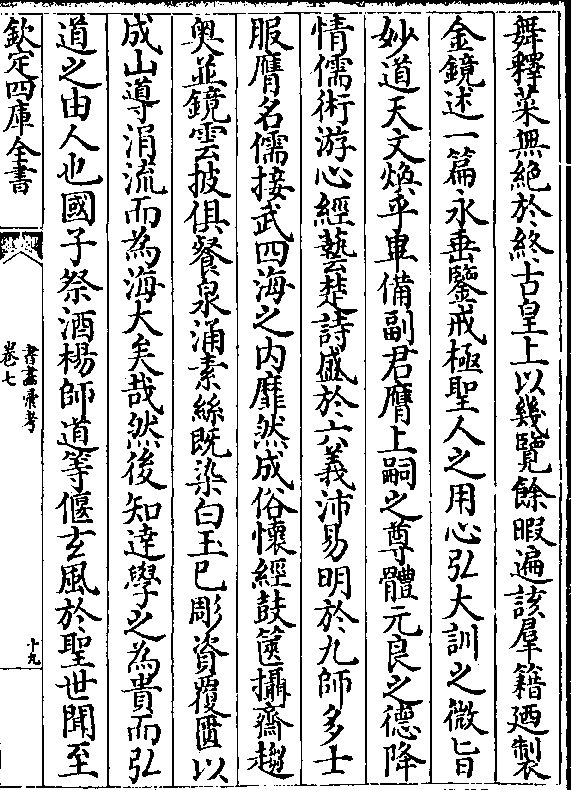 舞釋菜無絕於終古皇上以㡬覽餘暇遍該羣籍廼製
金鏡述一篇永垂鑒戒極聖人之用心弘大訓之微旨
妙道天文煥乎畢備副君膺上嗣之尊體元良之德降
情儒術游心經藝楚詩盛於六義沛易明於九師多士
服膺名儒接武四海之内靡然成俗懷經鼓篋攝齋趨
奥並鏡雲披俱餐泉涌素絲既染白玉已彫資覆匱以
成山導涓流而為海大矣哉然後知達學之為貴而弘
道之由人也國子祭酒楊師道等偃𤣥風於聖世聞至
欽定四庫全書
書畫彚考
卷七
十九